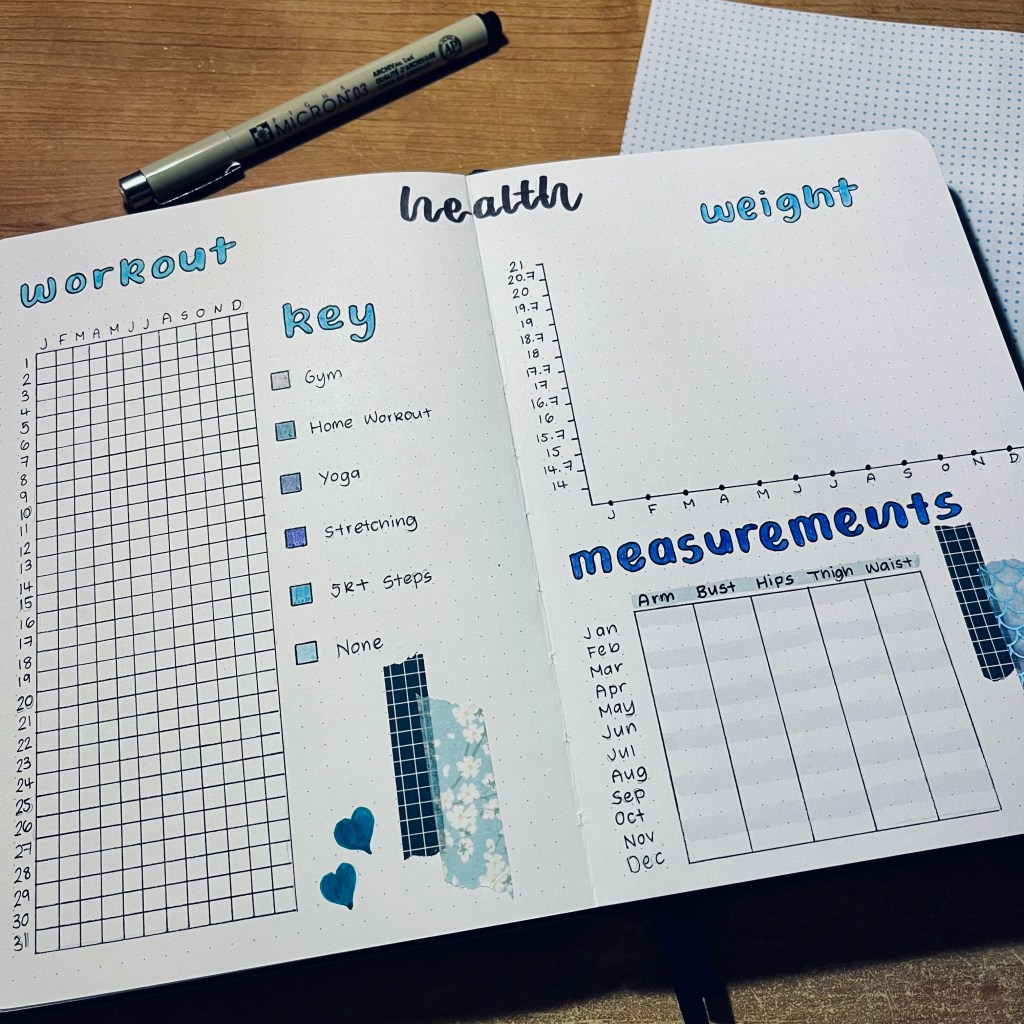 ARCHIVAL INK
QUALITÉ D'ARCHIVAGE
AP
MICRON 03
health
workout
J F M A M J J A S O N D
1
2
3
4
5
6
7
8
9
10
11
12
13
14
15
16
17
18
19
20
21
22
23
24
25
26
27
28
29
30
31
key
Gym
Home Workout
Yoga
Stretching
5k+ Steps
None
weight
21
20.7
20
19.7
19
18.7
18
17.7
17
16.7
16
15.7
15
14.7
14
J F M A M J J A S O N D
measurements
Arm Bust Hips Thigh Waist
Jan
Feb
Mar
Apr
May
Jun
Jul
Aug
Sep
Oct
Nov
Dec